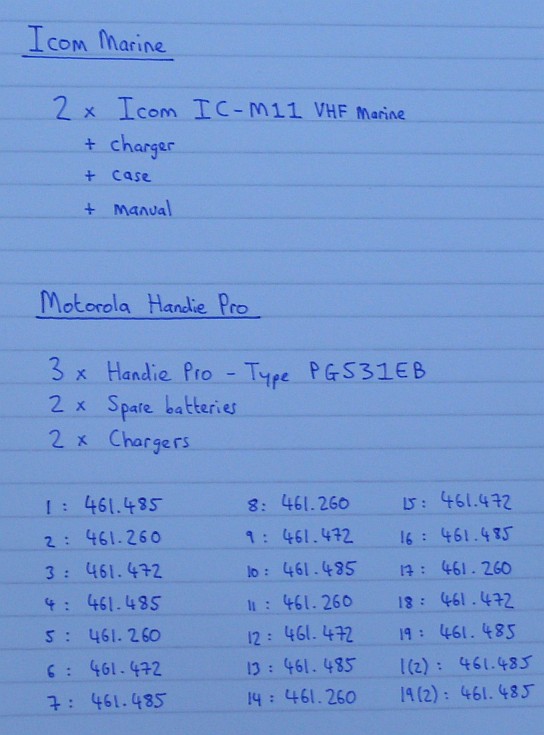 Icom Marine
2 x Icom IC-M11 VHF Marine
+ charger
+ case
+ manual
Motorola Handie Pro
3 x Handie Pro - Type PG531EB
2 x Spare batteries
2 x Chargers
1: 461.485 8: 461.260 15: 461.472
2: 461.260 9: 461.472 16: 461.485
3: 461.472 10: 461.485 17: 461.260
4: 461.485 11: 461.260 18: 461.472
5: 461.260 12: 461.472 19: 461.485
6: 461.472 13: 461.485 1(2): 461.485
7: 461.485 14: 461.260 19(2): 461.485